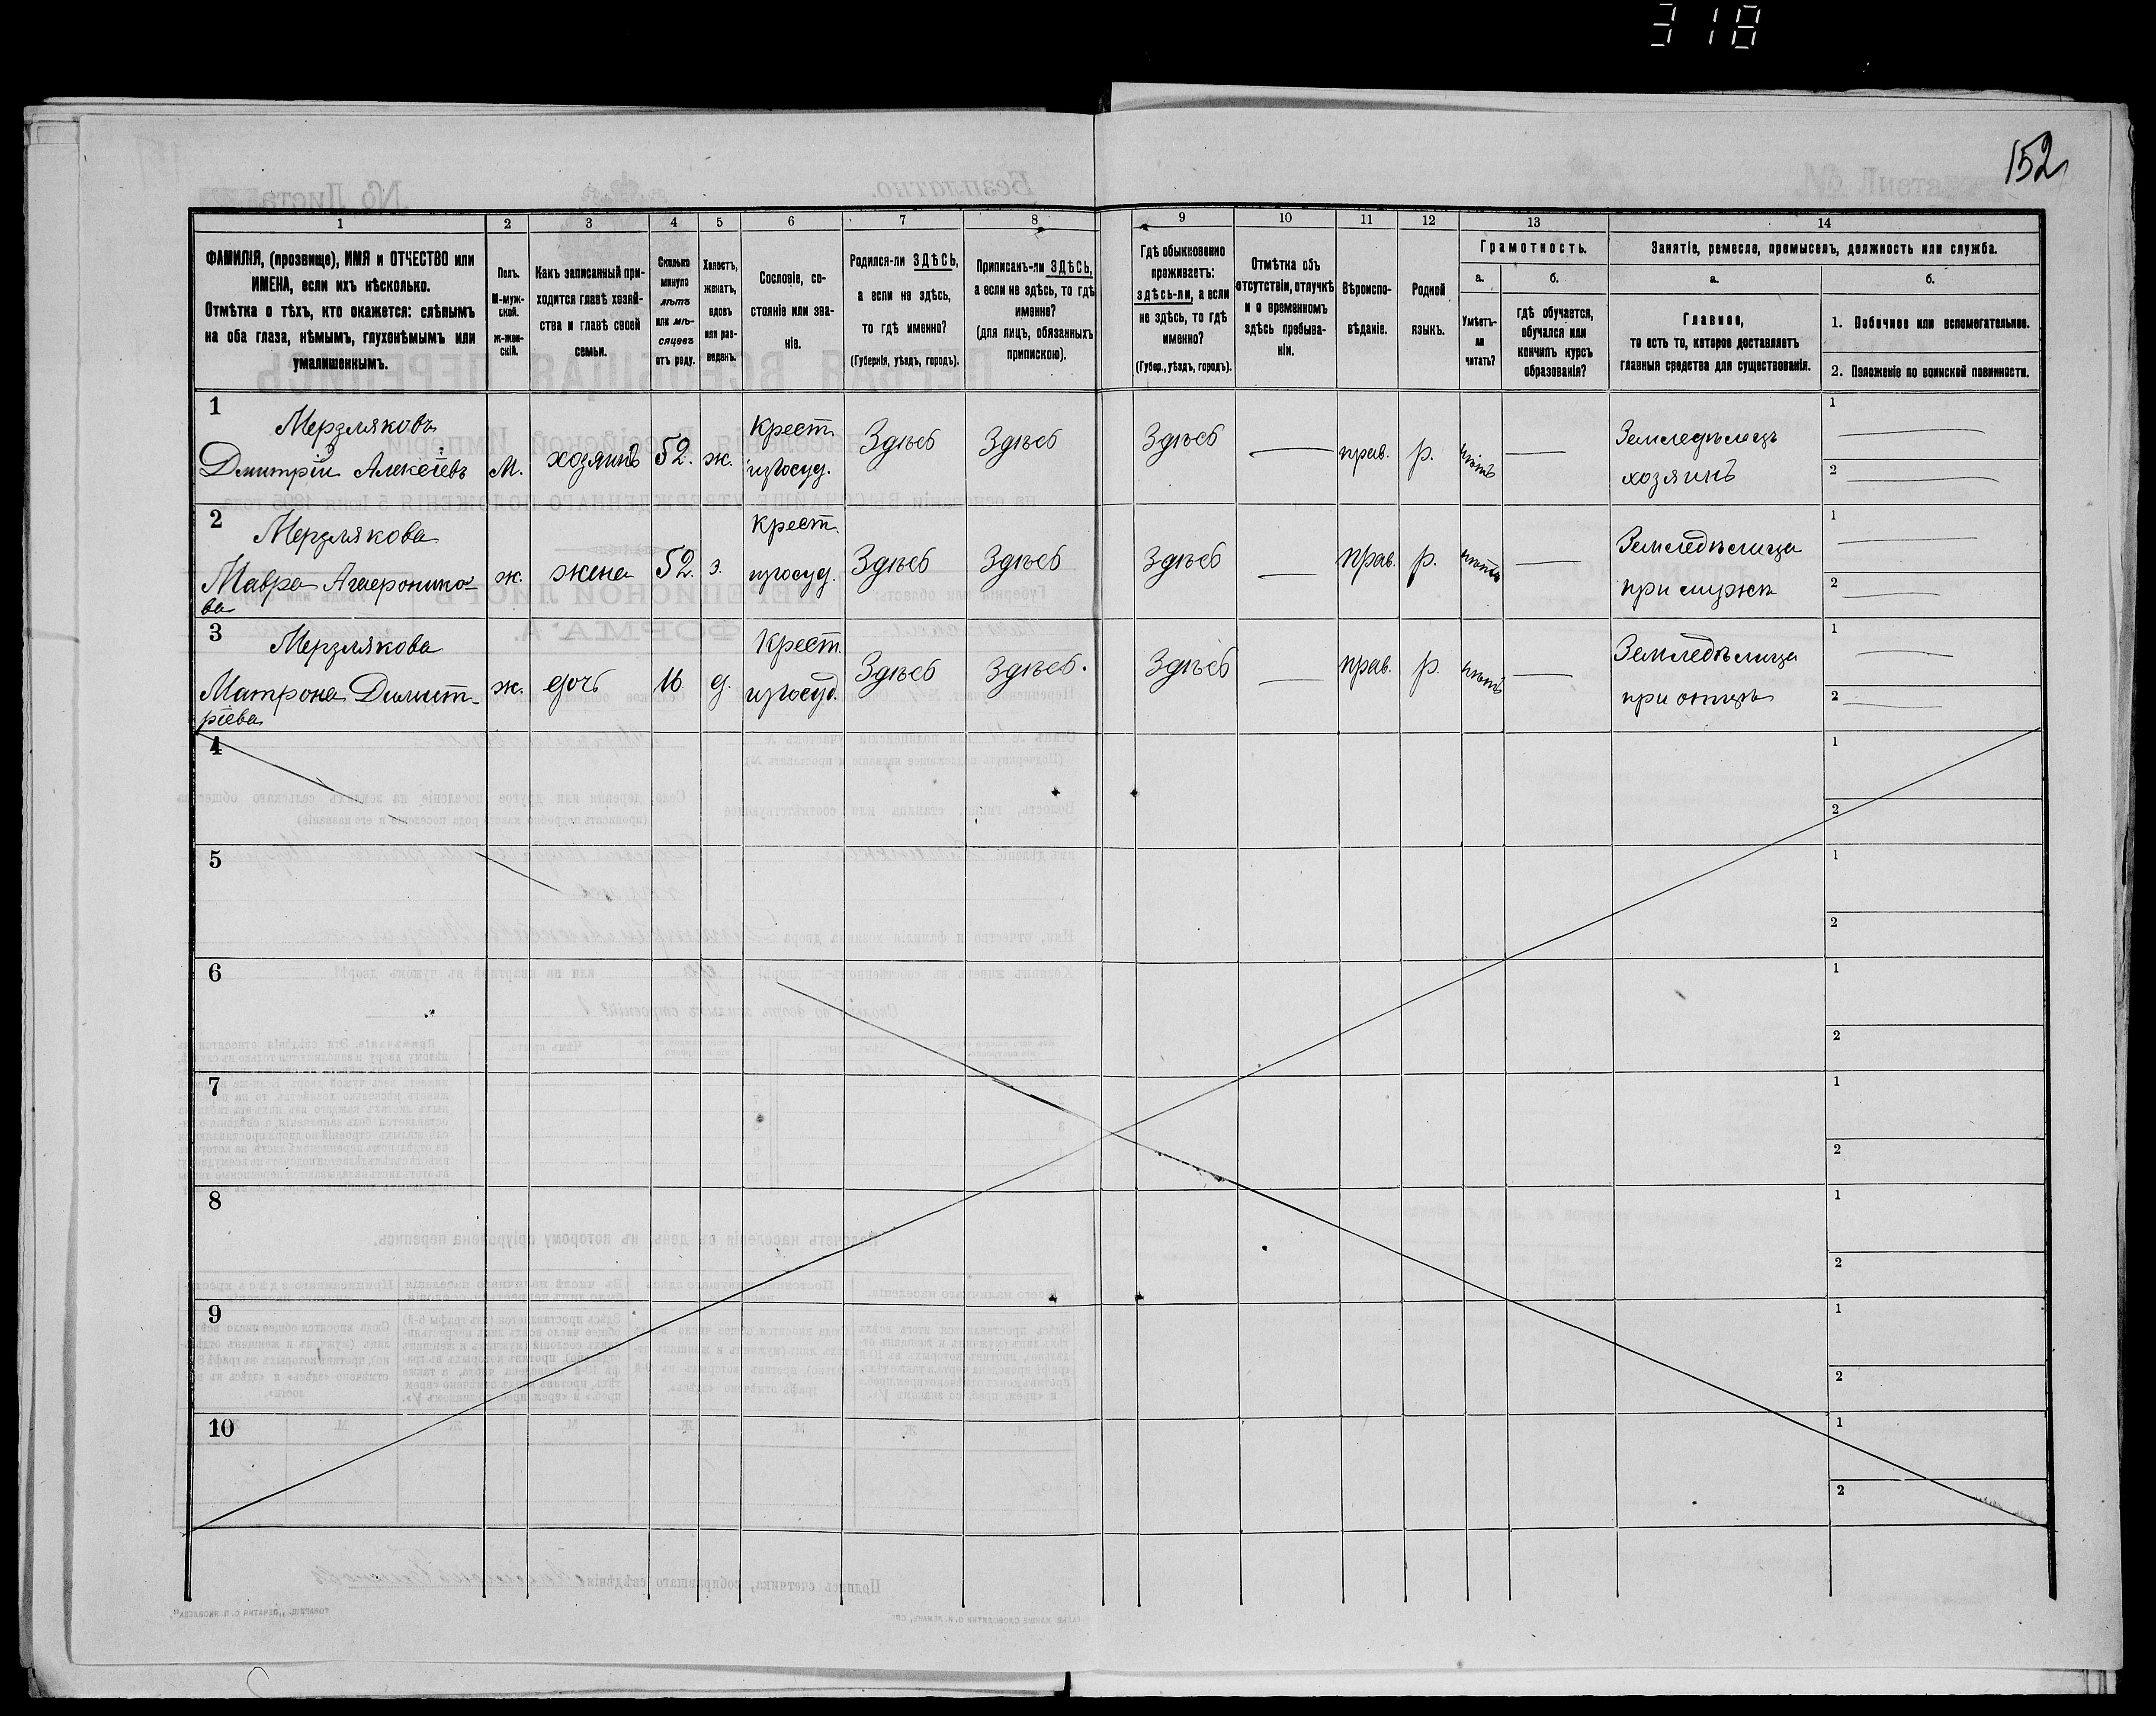 318
152
1
2
3
4
5
6
7
8
9
10
11
12
13
14
ФАМИЛІЯ, (прозвище), ИМЯ и ОТЧЕСТВО или
ИМЕНА, если ихъ нѣсколько.
Отмѣтка о тѣхъ, кто окажется: слѣпымъ
на оба глаза, нѣмымъ, глухонѣмымъ или
умалишеннымъ.
Полъ.
М-муж-
ской.
ж-жен-
скій.
Какъ записанный при-
ходится главѣ хозяй-
ства и главѣ своей
семьи.
Сколько
минуло
лѣтъ
или мѣ-
сяцевъ
отъ роду.
Холостъ,
женатъ,
вдовъ
или раз-
веденъ.
Сословіе, со-
стояніе или зва-
ніе.
Родился-ли ЗДѢСЬ,
а если не здѣсь,
то гдѣ именно?
(Губернія, уѣздъ, городъ).
Приписанъ-ли ЗДѢСЬ,
а если не здѣсь, то гдѣ
именно?
(для лицъ, обязанныхъ
припискою).
Гдѣ обыкновенно
проживаетъ:
здѣсь-ли, а если
не здѣсь, то гдѣ
именно?
(Губер., уѣздъ, городъ).
Отмѣтка объ
отсутствіи, отлучкѣ
и о временномъ
здѣсь пребыва-
ніи.
Вѣроиспо-
вѣданіе.
Родной
языкъ.
Грамотность.
а.
Умѣетъ-
ли
читать?
б.
гдѣ обучается,
обучался или
кончилъ курсъ
образованія?
Занятіе, ремесло, промыселъ, должность или служба.
а.
Главное,
то есть то, которое доставляетъ
главныя средства для существованія.
б.
1. Побочное или вспомогательное.
2. Положеніе по воинской повинности.
1
Мерзляковъ
Дмитрій Алексѣевъ
М.
хозяинъ
52.
ж.
Крест.
изъ госуд.
Здѣсь
Здѣсь
Здѣсь
—
прав.
р.
нѣтъ
—
Земледѣлецъ
хозяинъ
1 —
2 —
2
Мерзлякова
Мавра
ж.
жена
52.
з.
Крест.
изъ госуд.
Здѣсь
Здѣсь
Здѣсь
—
прав.
р.
нѣтъ
—
Земледѣлица
при мужѣ
1 —
2 —
3
Мерзлякова
Матрона Димит-
ріева
ж.
дочь
16
д.
Крест.
изъ госуд.
Здѣсь
Здѣсь.
Здѣсь
—
прав.
р.
нѣтъ
—
Земледѣлица
при отцѣ
1 —
2 —
4
1
2
5
1
2
6
1
2
7
1
2
8
1
2
9
1
2
10
1
2